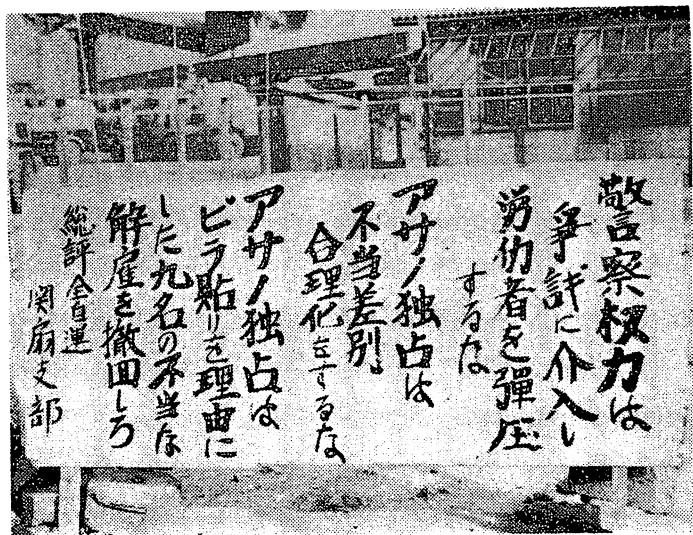 警察权力は
争議に介入し
労仂者を弾圧
するな
アサノ独占は
不当差別
合理化をするな
アサノ独占は
ビラ貼りを理由に
した九名の不当な
解雇を撤回しろ
総評全自運
関扇支部